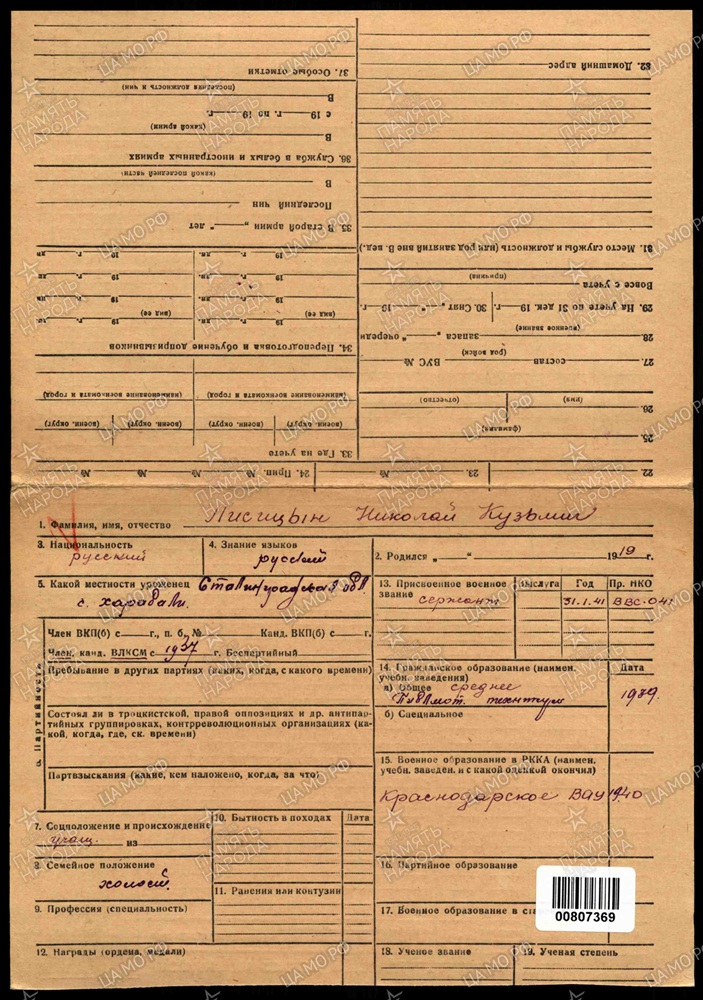 1. Фамилия, имя, отчество Лисицын Николай Кузьмич
3. Национальность русский
4. Знание языков русский
2. Родился „ — “ 1919 г.
5. Какой местности уроженец Сталинградская обл.
с. Харабали.
13. Присвоенное военное звание сержант
Выслуга
Год 31.1.41
Пр. НКО ВВС-041
6. Партийность
Член ВКП(б) с г., п. б. № Канд. ВКП(б) с г.
Член, канд. ВЛКСМ с 1937 г. Беспартийный
Пребывание в других партиях (каких, когда, с какого времени)
Состоял ли в троцкистской, правой оппозициях и др. антипар-
тийных группировках, контрреволюционных организациях (ка-
кой, когда, где, ск. времени)
Партвзыскания (какие, кем наложено, когда, за что)
14. Гражданское образование (наимен.
учебн. заведения)
Дата
а) Общее среднее
техникум 1939
б) Специальное
15. Военное образование в РККА (наимен.
учебн. заведен. и с какой оценкой окончил)
Краснодарское ВАУ 1940
7. Соцположение и происхождение
учащ. из
8. Семейное положение
холост.
9. Профессия (специальность)
10. Бытность в походах Дата
11. Ранения или контузии
12. Награды (ордена, медали)
16. Партийное образование
17. Военное образование в ста
18. Ученое звание
19. Ученая степень
00807369
22. №
23. №
24. Прип. № № №
25.
(фамилия)
26.
(имя) (отчество)
27. состав ВУС №
(род войск)
28. запаса „ “ очереди
(военное звание)
29. На учете по 31 дек. 19 г. 30. Снят „ “ 19 г.
Вовсе с учета
(причина)
31. Место службы и должность (или род занятий вне В. вед.)
32. Домашний адрес
33. Где на учете
(военн. округ) (военн. округ) (военн. округ) (военн. округ)
(наименование военкомата и город) (наименование военкомата и город)
34. Переподготовка и обучение допризывников
(вид ее) (вид ее)
19 г. дн. 19 г. дн.
19 г. дн. 19 г. дн.
19 г. дн. 19 г. дн.
19 г. дн. 19 г. дн.
35. В старой армии „ “ лет
Последний чин
В
(какой последней части)
36. Служба в белых и иностранных армиях
В
(какой армии)
с 19 г. по 19 г.
В
(последняя должность и чин)
37. Особые отметки
ПАМЯТЬ НАРОДА
ЦАМО.РФ